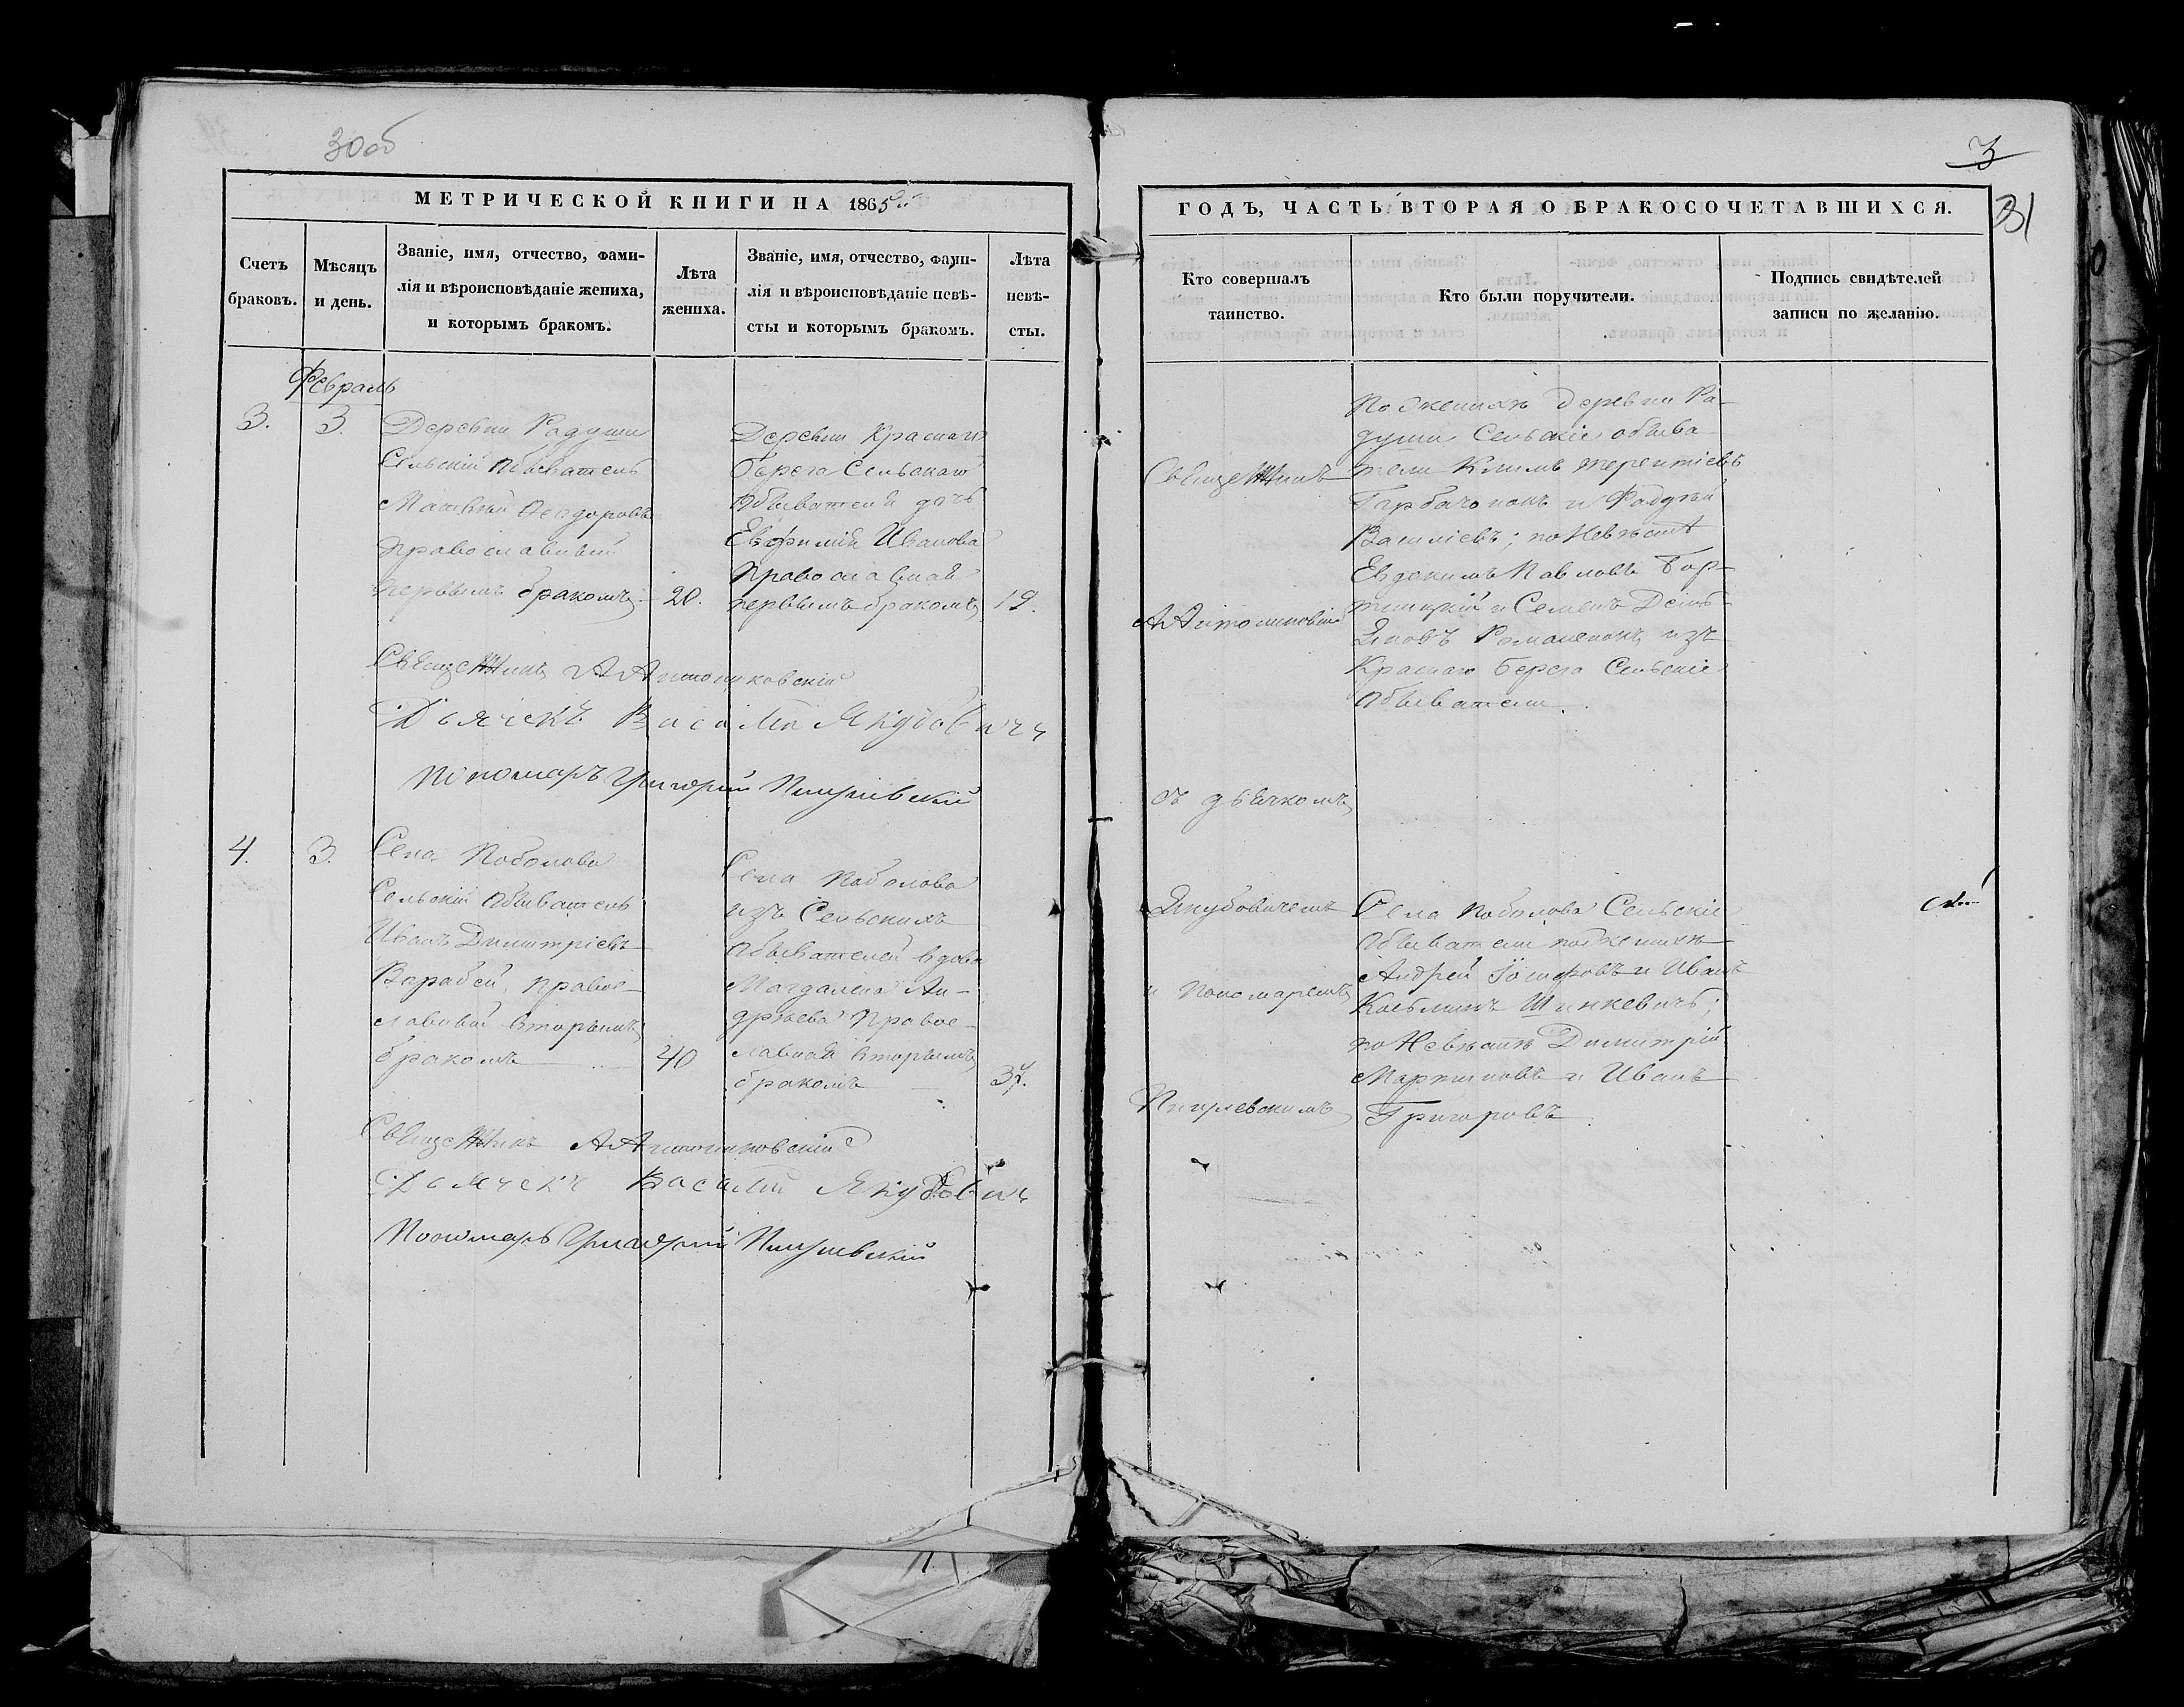 30 об
МЕТРИЧЕСКОЙ КНИГИ НА 1865
Счетъ браковъ.
Мѣсяцъ и день.
Званіе, имя, отчество, фами-
лія и вѣроисповѣданіе жениха,
и которымъ бракомъ.
Лѣта жениха.
Званіе, имя, отчество, фами-
лія и вѣроисповѣданіе невѣ-
сты и которымъ бракомъ.
Лѣта невѣ-
сты.
Февраль
3.
3.
Деревни Радуши
Сельскій Обыватель
Матвѣй Ѳеодоровъ
православный
первымъ бракомъ
20.
Деревни Краснаго
берега Сельскаго
Обывателя дочь
Евфимія Иванова
Православная
первымъ бракомъ
19.
Священникъ А Антониковскій
Дьячекъ Василій Якубовичъ
Пономарь Григорій
4.
3.
Села Поболова
Сельскій Обыватель
Иванъ Димитріевъ
Варабей, правос-
лавный вторымъ
бракомъ
40
Села Поболова
изъ Сельскихъ
Обывателей вдова
Магдалена Ан-
дрѣева Правос-
лавная вторымъ
бракомъ
37.
Священникъ А Антониковскій
Дьячекъ Василій Якубовичъ
Пономарь Григорій
3
31
ГОДЪ, ЧАСТЬ ВТОРАЯ О БРАКОСОЧЕТАВШИХСЯ.
Кто совершалъ
таинство.
Кто были поручители.
Подпись свидѣтелей
записи по желанію.
Священникъ
А Антониковскій
съ дьячкомъ
Якубовичемъ
и Пономаремъ
По женихѣ деревни Ра-
души Сельскіе обыва-
тели Климъ Терентіевъ
Гарбачонокъ и Фаддѣй
Василіевъ; по Невѣстѣ
Евдокимъ Павловъ
и Семенъ
Романенокъ изъ
Краснаго берега Сельскіе
Обыватели.
Села Поболова Сельскіе
Обыватели по женихѣ
Андрей Іосифовъ и Иванъ
Козьминъ Шинкевичъ;
по Невѣстѣ Димитрій
Мартиновъ и Иванъ
Григоровъ.